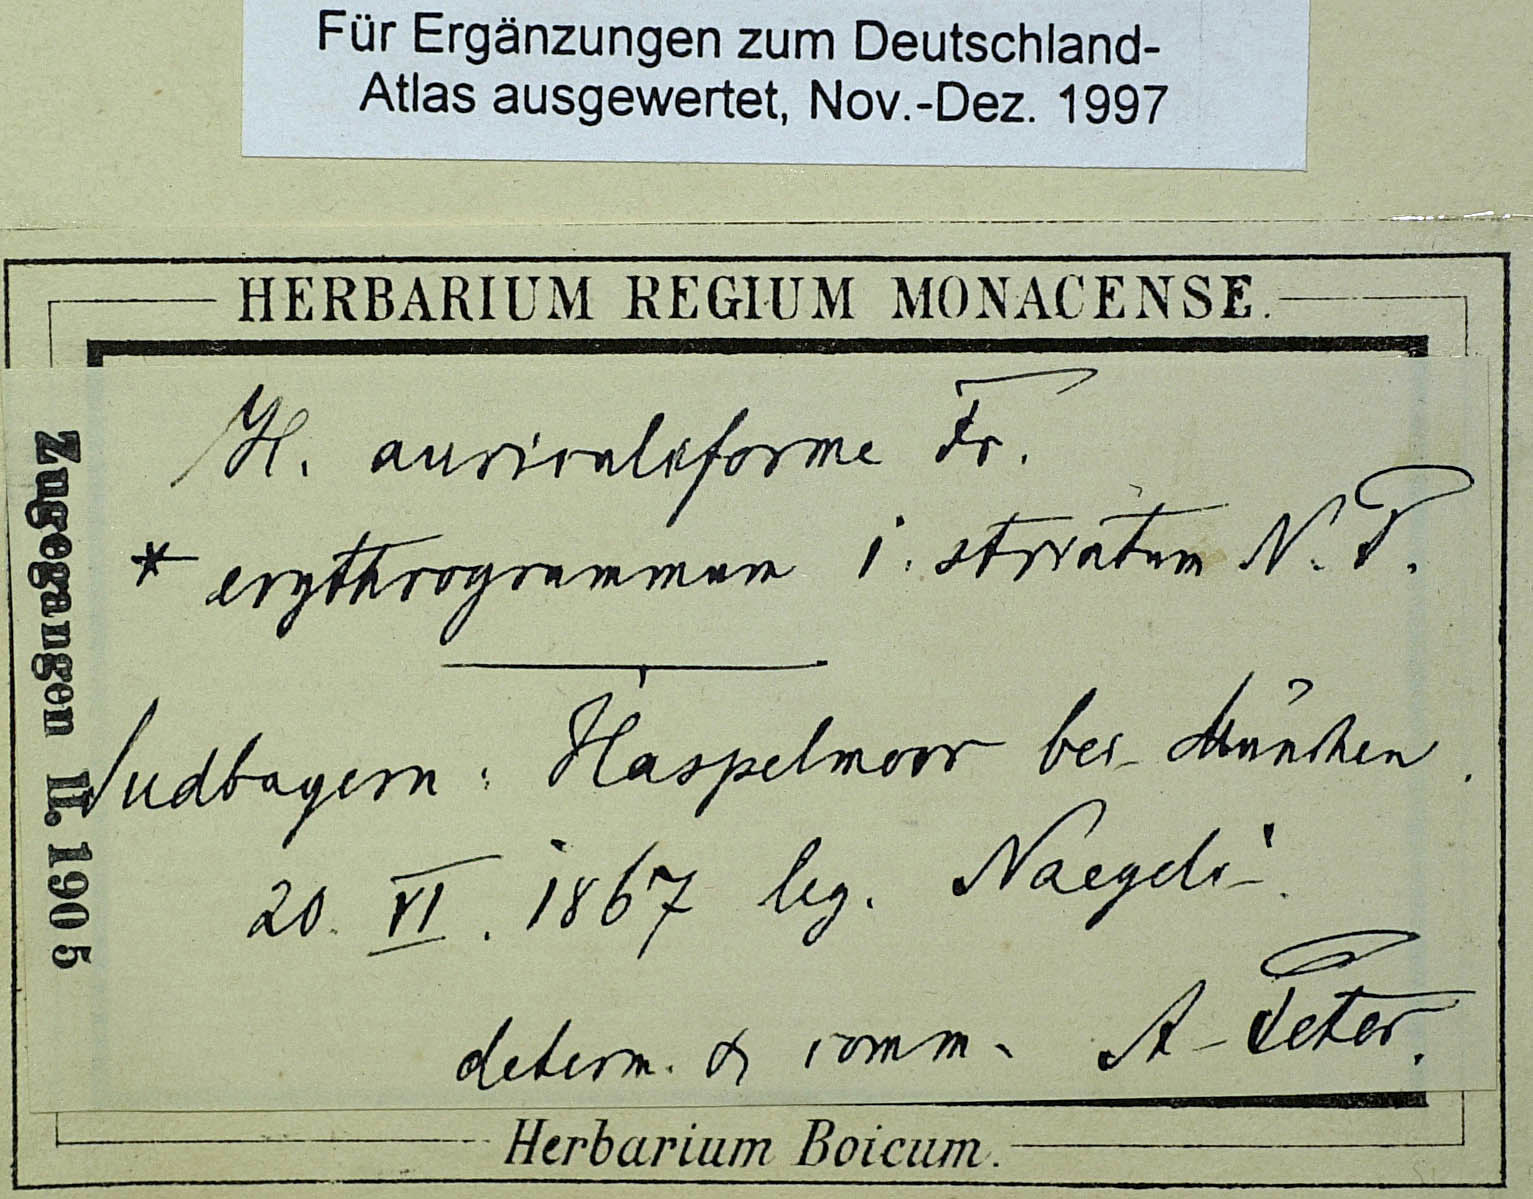 Für Ergänzungen zum Deutschland-
Atlas ausgewertet, Nov.-Dez. 1997
HERBARIUM REGIUM MONACENSE.
H. auriculiforme Fr.
* erythrogrammum 1. striatum N. P.
Südbayern: Haspelmoor bei München.
20. VI. 1867 leg. Naegeli.
determ. & comm. A. Peter.
Herbarium Boicum.
Zugegangen II. 1905